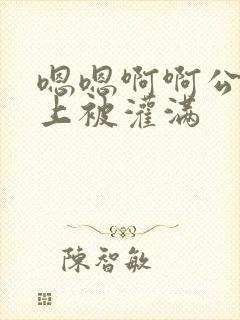 嗯嗯啊啊公
上被灌满
陳智敏